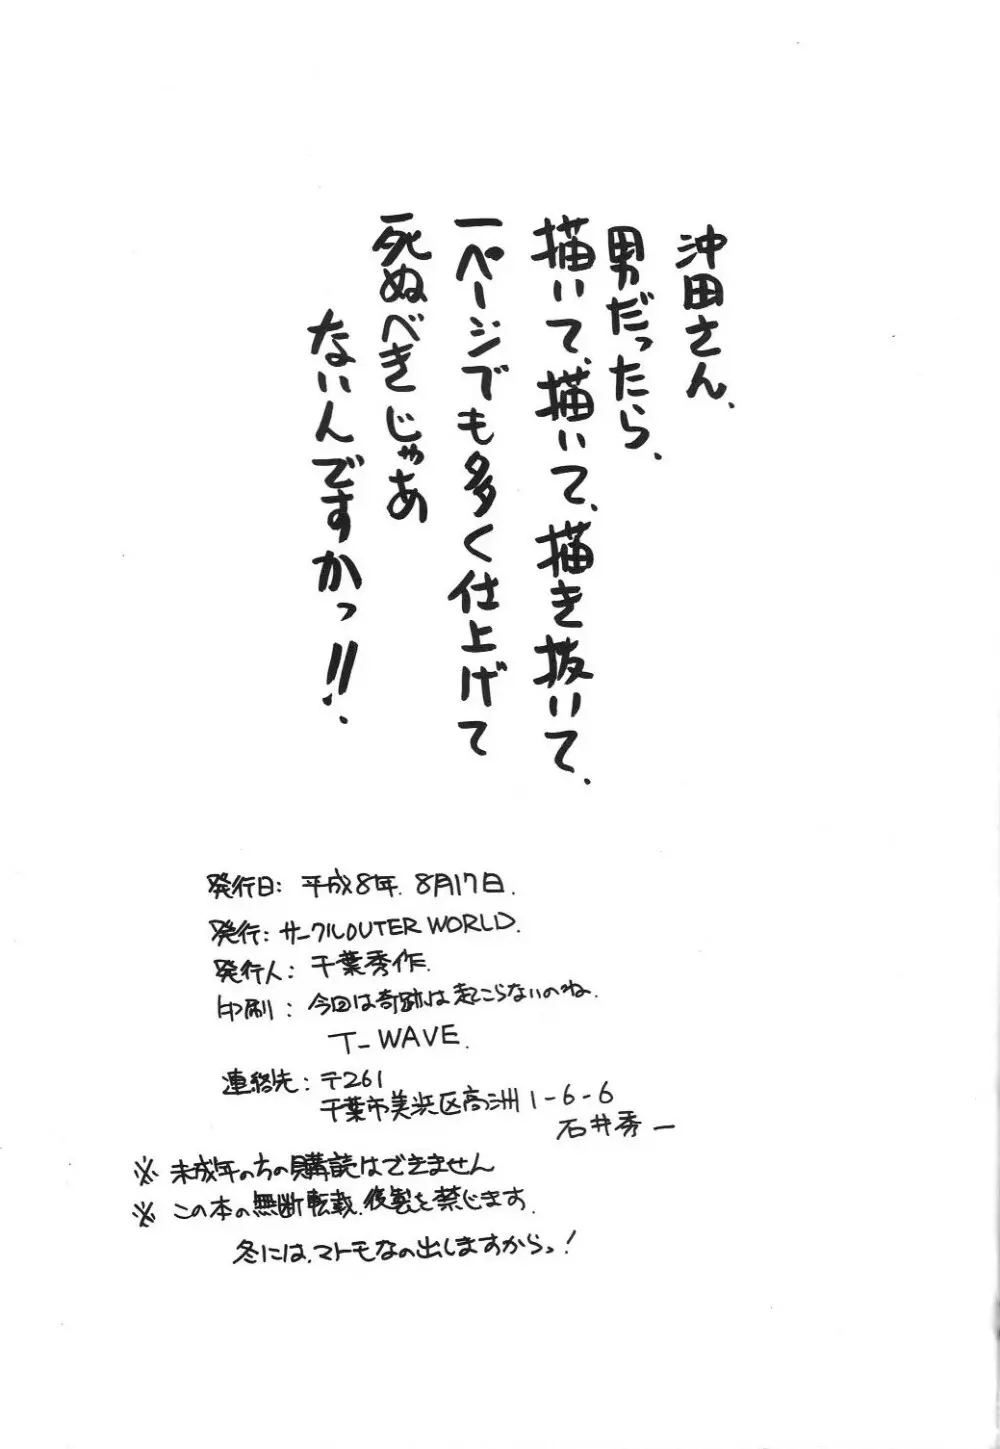 沖田さん、
男だったら、
描いて、描いて、描き抜いて、
一ページでも多く仕上げて
死ぬべきじゃあ
ないんですかっ!!
発行日: 平成8年.8月17日.
発行: サークルOUTER WORLD.
発行人: 千葉秀作.
印刷: 今回は奇跡は起こらないのね.
T-WAVE.
連絡先: 〒261
千葉市美浜区高洲1-6-6
石井秀一
※ 未成年のちの購読はできません
※ この本の無断転載.複製を禁じます.
冬には、マトモなの出しますからっ!